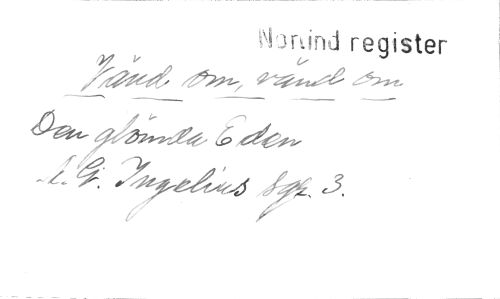 Norlind register
Vänd om, vänd om
Den glömda Eden
A. G. Ingelius Sgr. 3.